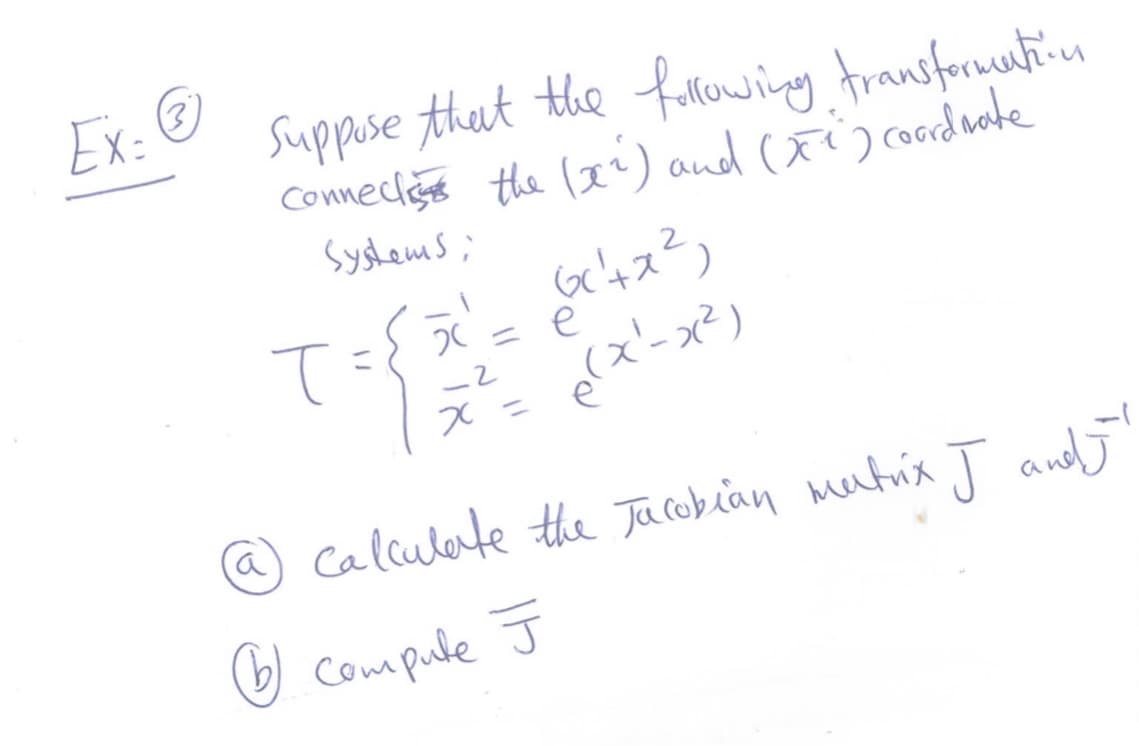 Ex: ③ Suppose that the following transformation
connects the (xⁱ) and (x̄ⁱ) coordnate
systems;
T = { x̄¹ = e^(x¹+x²)
x̄² = e^(x¹-x²)
ⓐ calculate the Jacobian matrix J and J⁻¹
ⓑ compute J̄